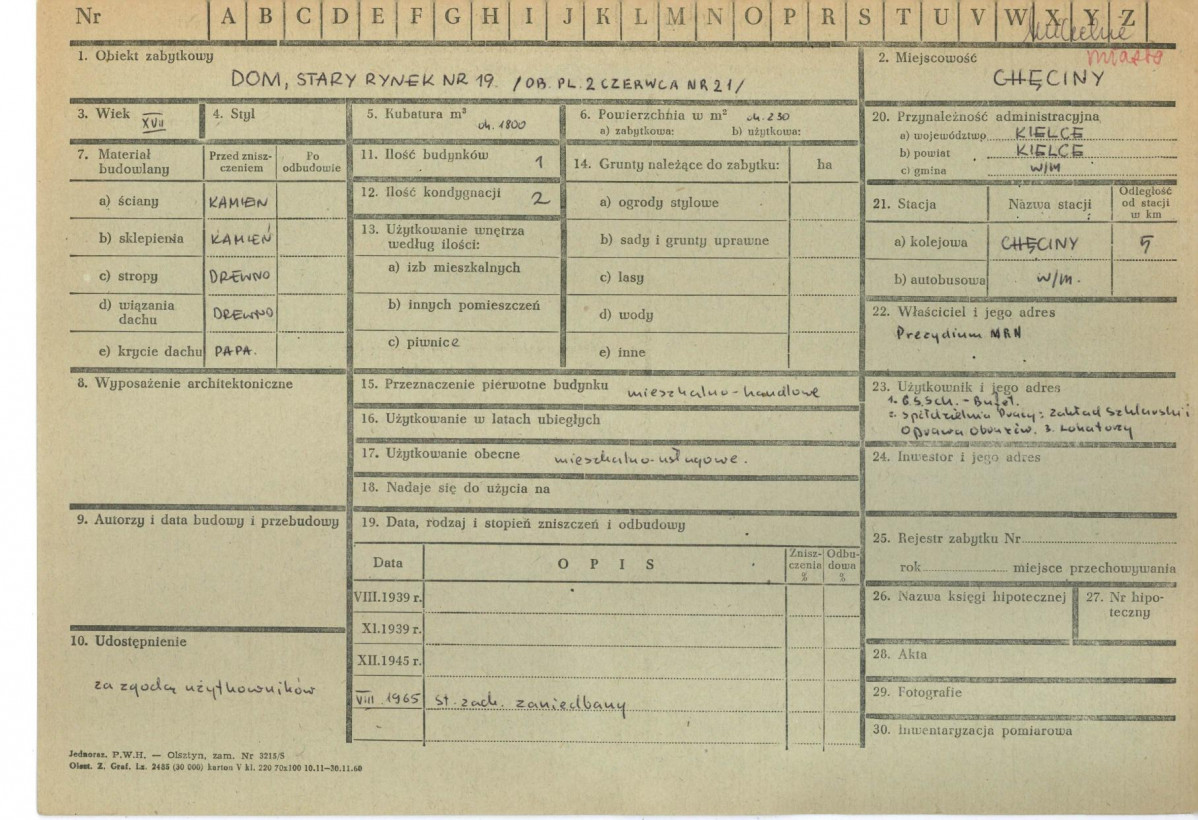 Nr A B C D E F G H I J K L M N O P R S T U V W X Y Z
miasto
1. Obiekt zabytkowy
DOM, STARY RYNEK NR 19. /OB. PL. 2 CZERWCA NR 21/
2. Miejscowość
CHĘCINY
3. Wiek XVII
4. Styl
5. Kubatura m³ ok. 1800
6. Powierzchnia w m² ok. 230
a) zabytkowa: b) użytkowa:
20. Przynależność administracyjna
a) województwo KIELCE
b) powiat KIELCE
c) gmina W/M
7. Materiał budowlany
Przed zniszczeniem
Po odbudowie
a) ściany KAMIEŃ
b) sklepienia KAMIEŃ
c) stropy DREWNO
d) wiązania dachu DREWNO
e) krycie dachu PAPA.
11. Ilość budynków 1
12. Ilość kondygnacji 2
13. Użytkowanie wnętrza
według ilości:
a) izb mieszkalnych
b) innych pomieszczeń
c) piwnice
14. Grunty należące do zabytku: ha
a) ogrody stylowe
b) sady i grunty uprawne
c) lasy
d) wody
e) inne
21. Stacja
Nazwa stacji
Odległość
od stacji
w km
a) kolejowa CHĘCINY 5
b) autobusowa w/m.
22. Właściciel i jego adres
Prezydium MRN
8. Wyposażenie architektoniczne
15. Przeznaczenie pierwotne budynku mieszkalno-handlowe
16. Użytkowanie w latach ubiegłych
17. Użytkowanie obecne mieszkalno-usługowe.
18. Nadaje się do użycia na
23. Użytkownik i jego adres
1. G.S.SCh. - Bufet.
2. Spółdzielnia Pracy: Zakład Szklarski i
Oprawa Obrazów. 3. Lokatorzy
24. Inwestor i jego adres
9. Autorzy i data budowy i przebudowy
19. Data, rodzaj i stopień zniszczeń i odbudowy
Data
OPIS
Zniszczenia
%
Odbudowa
%
VIII.1939 r.
XI.1939 r.
XII.1945 r.
VIII.1965 st. zach. zaniedbany
25. Rejestr zabytku Nr
rok miejsce przechowywania
26. Nazwa księgi hipotecznej
27. Nr hipoteczny
28. Akta
29. Fotografie
30. Inwentaryzacja pomiarowa
10. Udostępnienie
za zgodą użytkowników
Jednoraz. P.W.H. — Olsztyn, zam. Nr 3215/S
Olszt. Z. Graf. Lz. 2485 (30 000) karton V kl. 220 70x100 10.11—30.11.60